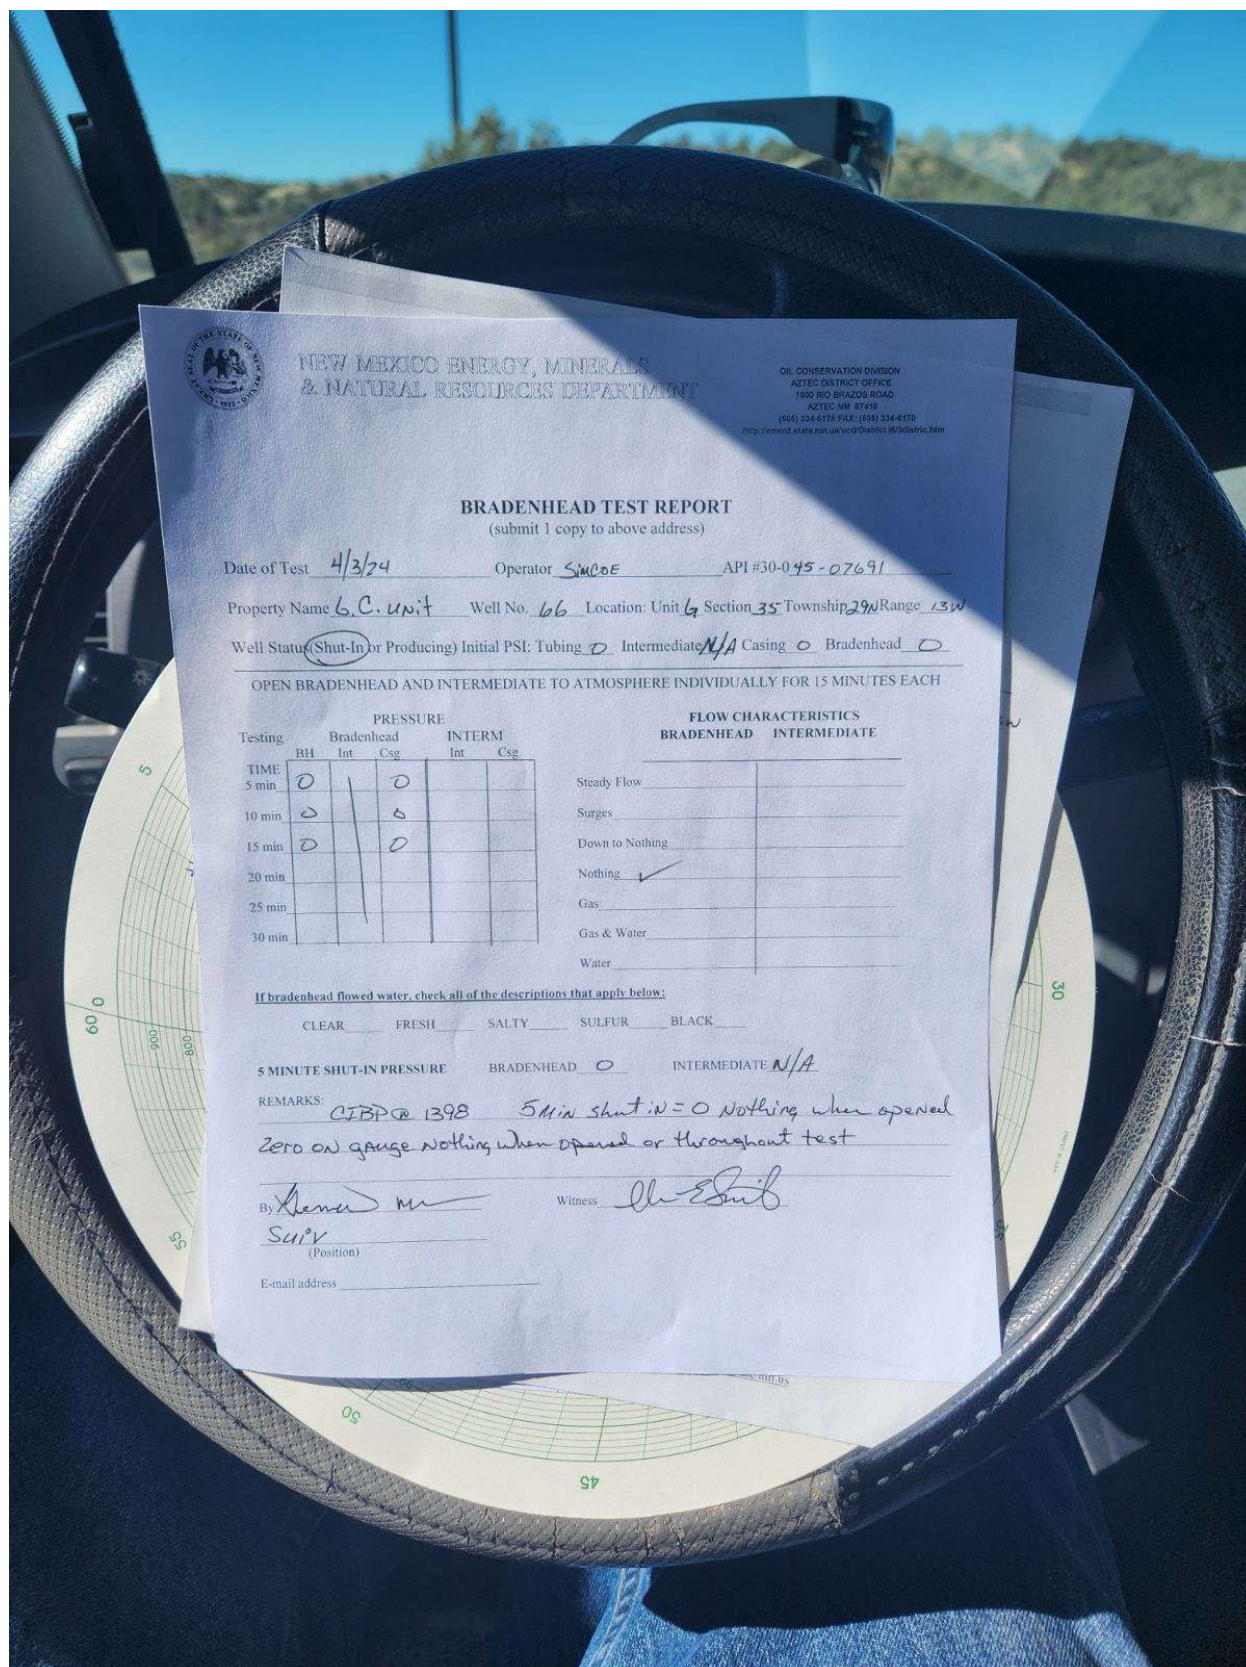 NEW MEXICO ENERGY, MINERALS
& NATURAL RESOURCES DEPARTMENT
OIL CONSERVATION DIVISION
AZTEC DISTRICT OFFICE
1000 RIO BRAZOS ROAD
AZTEC NM 87410
(505) 334-6178 FAX: (505) 334-6170
http://emnrd.state.nm.us/ocd/District III/3distric.htm
BRADENHEAD TEST REPORT
(submit 1 copy to above address)
Date of Test 4/3/24 Operator SimCOE API #30-045-07691
Property Name G.C. UNit Well No. 66 Location: Unit G Section 35 Township 29N Range 13W
Well Status (Shut-In or Producing) Initial PSI: Tubing 0 Intermediate N/A Casing 0 Bradenhead 0
OPEN BRADENHEAD AND INTERMEDIATE TO ATMOSPHERE INDIVIDUALLY FOR 15 MINUTES EACH
PRESSURE
Testing Bradenhead INTERM
BH Int Csg Int Csg
TIME
5 min 0 0
10 min 0 0
15 min 0 0
20 min
25 min
30 min
FLOW CHARACTERISTICS
BRADENHEAD INTERMEDIATE
Steady Flow
Surges
Down to Nothing
Nothing ✓
Gas
Gas & Water
Water
If bradenhead flowed water, check all of the descriptions that apply below:
CLEAR FRESH SALTY SULFUR BLACK
5 MINUTE SHUT-IN PRESSURE BRADENHEAD 0 INTERMEDIATE N/A
REMARKS: CIBP @ 1398 5 Min shut iN = 0 Nothing when opened
Zero oN gauge Nothing when opened or throughout test
By Witness
(Position)
E-mail address
5
60 0
900
800
55
50
45
30